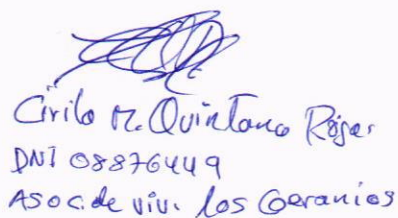 Cirilo M. Quintana Rojas
DNI 08876449
Asoc. de viv. los Geranios